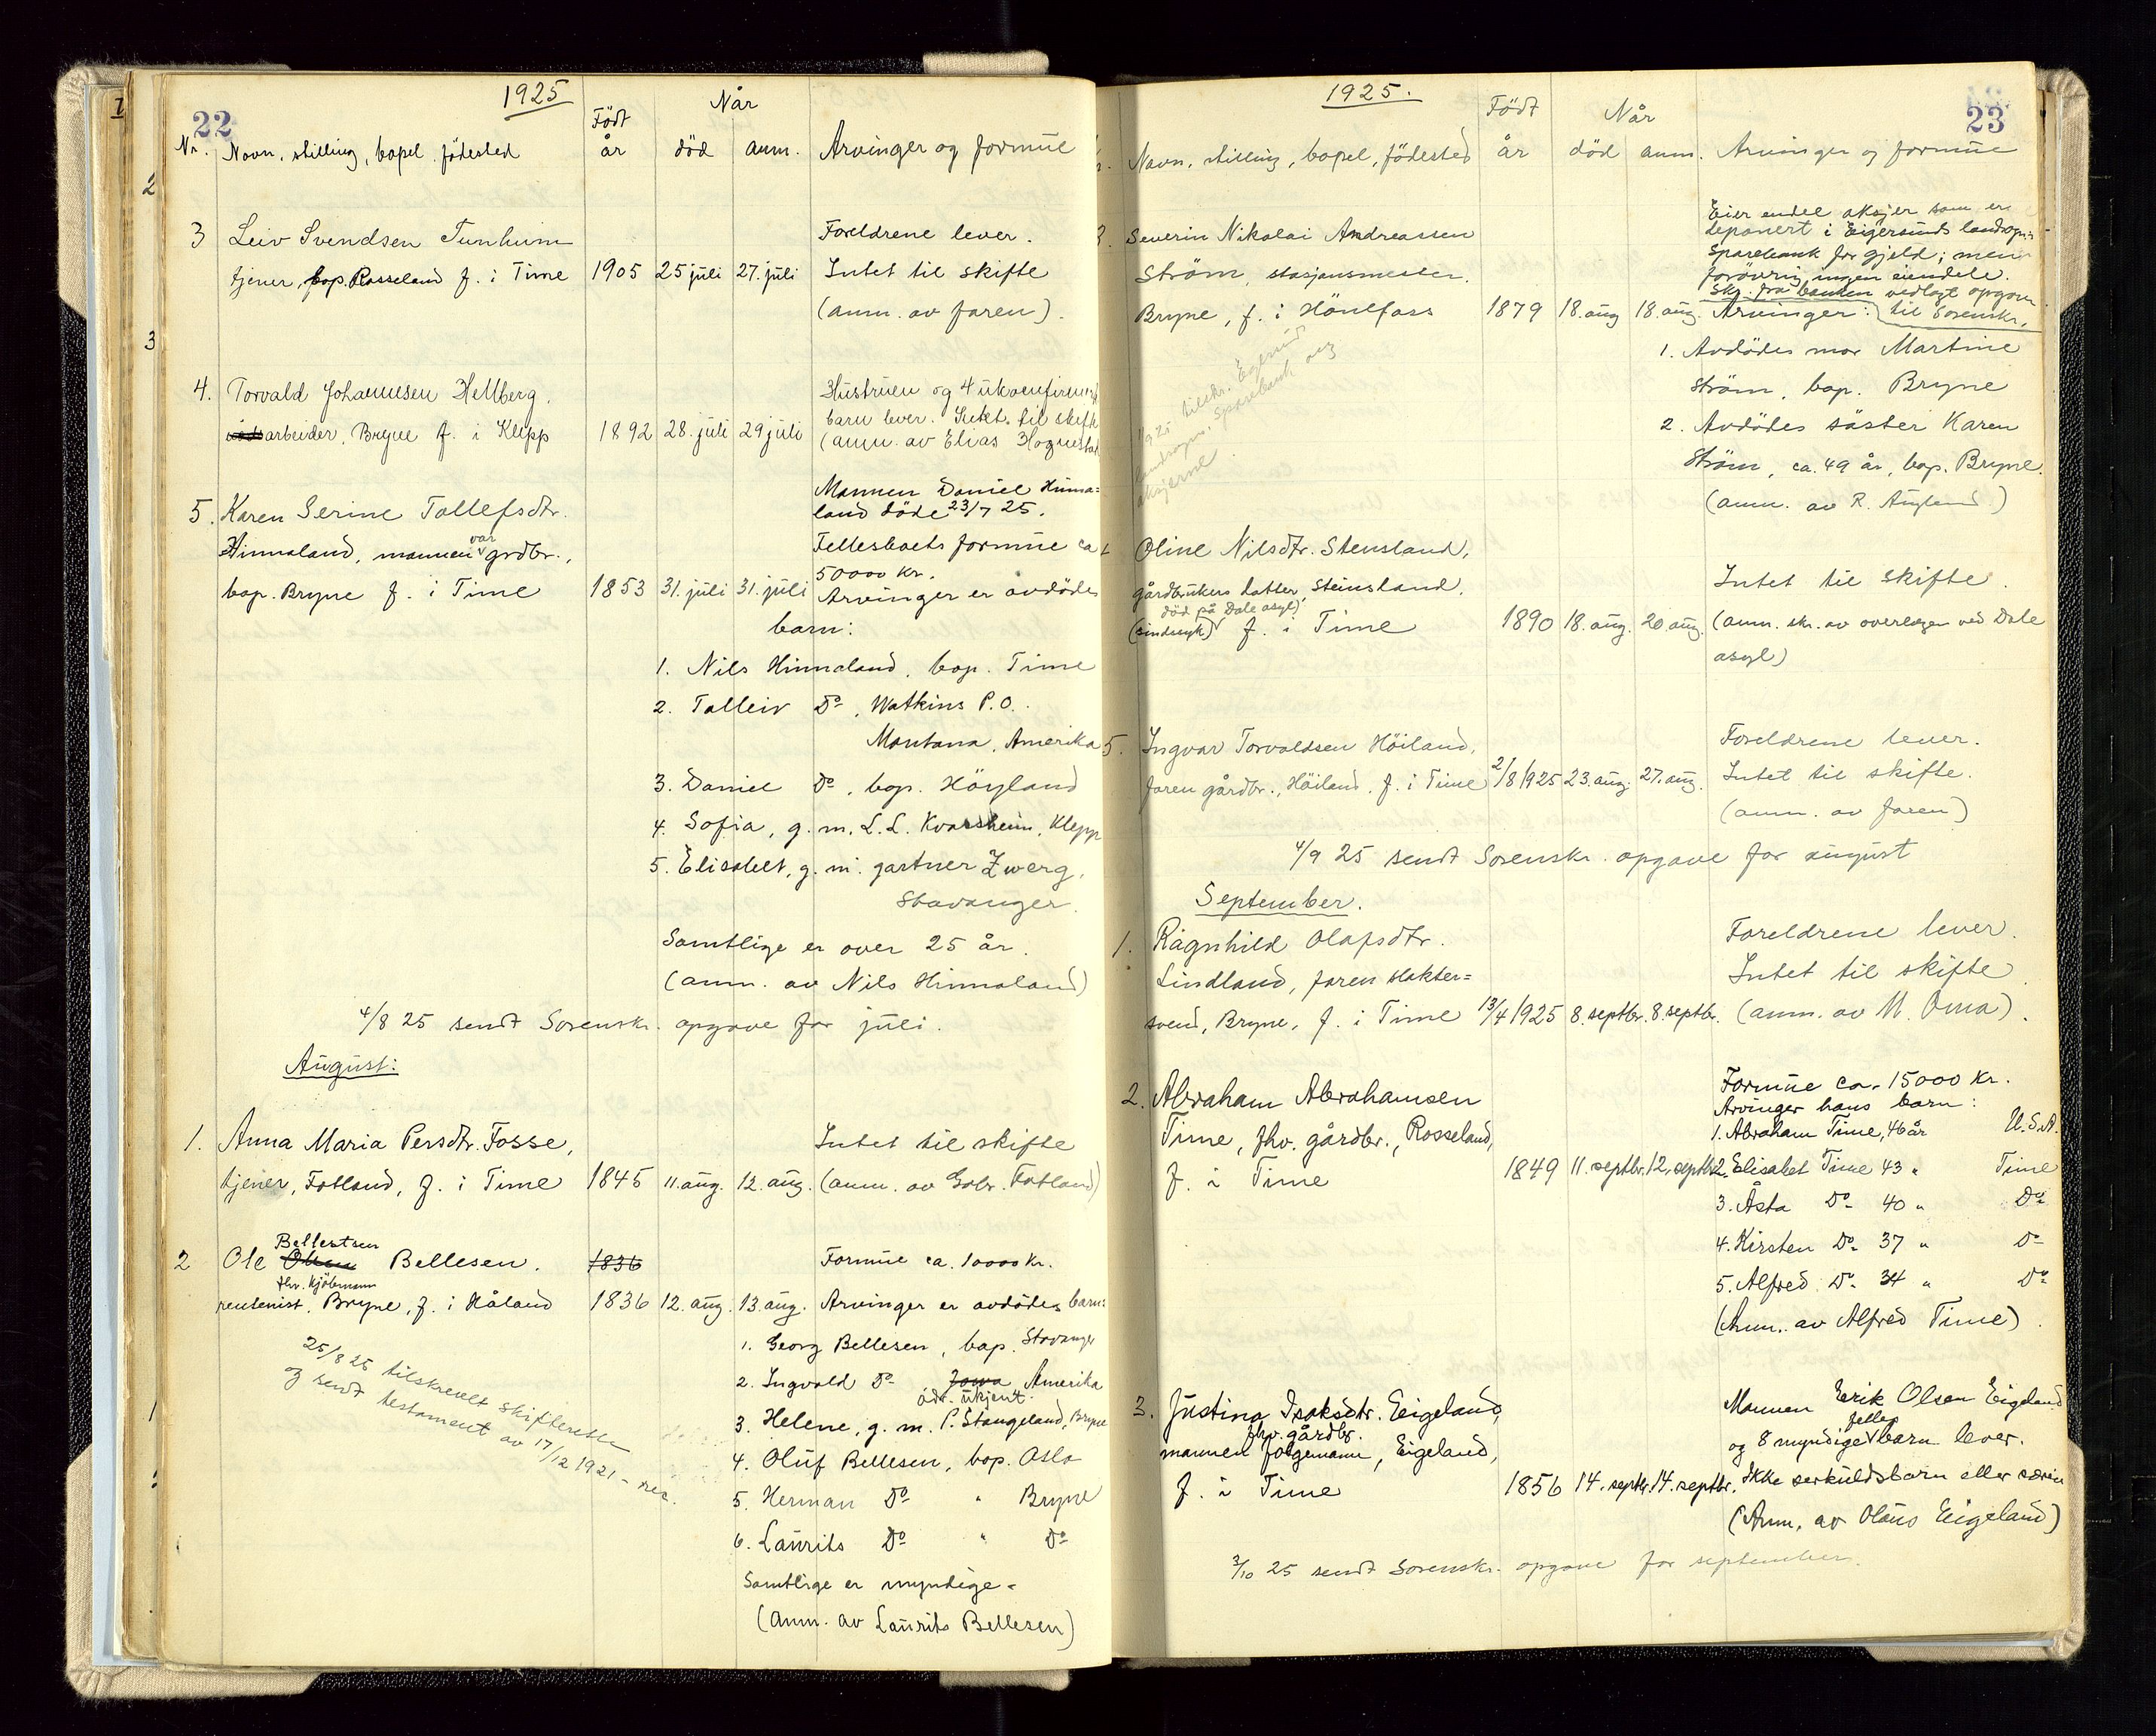 22
1925
Nr. Navn, stilling, bopel, födested
Född år
Når
död
anm.
Arvinger og formue
3 Leiv Svendsen Tunheim
tjener, bop. Rosseland f. i Time 1905 25 juli 27. juli
Foreldrene lever.
Intet til skifte
(anm. av faren).
4. Torvald Johannesen Hellberg,
arbeider, Bryne f. i Klepp 1892 28. juli 29 juli
Hustruen og 4 ukonfirmert
barn lever. Intet til skifte
(anm. av Elias Hognestad
5. Karen Serine Tollefsdtr.
Hinnaland, mannen var grdbr.,
bop. Bryne f. i Time 1853 31. juli 31. juli
Mannen Daniel Hinna=
land döde 23/7 25.
Fellesboets formue ca
50000 kr.
Arvinger er avdödes
barn:
1. Nils Hinnaland, bop. Time
2. Tolleiv Do, Watkins P.O.
Montana, Amerika
3. Daniel Do, bop. Höyland
4. Sofia, g. m. L. L. Kvarsheim, Klepp
5. Elisabet, g. m. gartner Zwerg,
Stavanger.
Samtlige er over 25 år.
(anm. av Nils Hinnaland)
4/8 25 sendt Sorenskr. opgave for juli.
August:
1. Anna Maria Persdtr. Fosse,
tjener, Fotland, f. i Time 1845 11. aug. 12. aug.
Intet til skifte
(anm. av Gabr. Fotland)
2 Ole Olsen Bellestsen Bellesen. 1836
fhv. kjöbmann
rentenist, Bryne, f. i Håland 1836 12. aug. 13. aug.
Formue ca. 10000 kr.
Arvinger er avdödes barn:
1. Georg Bellesen, bop. Stavanger
2. Ingvald Do Iowa Amerika
adr. ukjent.
3. Helene, g. m. P. Stangeland, Bryne
4. Oluf Bellesen, bop. Oslo
5. Herman Do " Bryne
6. Laurits Do " Do
Samtlige er myndige.
(anm. av Laurits Bellesen)
25/8 25 tilskrevet skifteretten
og sendt testament av 17/12 1921 - rec.
23
1925.
Navn, stilling, bopel, födested
Född år
Når
död
anm.
Arvinger og formue
3. Severin Nikolai Andreassen
Ström, stasjonsmester,
Bryne, f. i Hönefoss 1879 18. aug 18. aug.
Eier endel aksjer som er
deponert i Eigersunds landsogns
Sparebank for gjeld; men
forövrig ingen eiendele.
Skr. fra banken vedlagt opgaven
til Sorenskr.
Arvinger:
1. Avdödes mor Martine
Ström, bop. Bryne
2. Avdödes söster Karen
Ström, ca. 49 år, bop. Bryne.
(anm. av R. Augland)
landsogns Sparebank
aksjerne
Oline Nilsdtr. Stensland,
gårdbrukers datter, Steinsland,
död på Dale asyl)
(sindssyk) f. i Time 1890 18. aug. 20 aug.
Intet til skifte.
(anm. skr. av overlegen ved Dale
asyl)
5. Ingvar Torvaldsen Höiland,
faren gårdbr., Höiland, f. i Time 2/8 1925 23. aug. 27. aug.
Foreldrene lever.
Intet til skifte.
(anm. av faren)
4/9 25 sendt Sorenskr. opgave for august
September.
1. Ragnhild Olafsdtr.
Lindland, faren slakter=
svend, Bryne, f. i Time 13/4 1925 8. septbr. 8. septbr.
Foreldrene lever.
Intet til skifte
(anm. av M. Oma).
2. Abraham Abrahamsen
Time, fhv. gårdbr., Rosseland,
f. i Time 1849 11. septbr. 12. septbr.
Formue ca. 15000 kr.
Arvinger hans barn:
1. Abraham Time, 46 år U.S.A.
2. Elisabet Time 43 " Time
3. Åsta Do 40 " Do
4. Kirsten Do 37 " Do
5. Alfred Do 34 " Do
(Anm. av Alfred Time).
3. Justina Isaksdtr. Eigeland,
fhv. gårdbr.
mannen forgemann, Eigeland,
f. i Time 1856 14. septbr. 14. septbr.
Mannen Eerik Olsen Eigeland
og 8 myndige felles barn lever.
Ikke serkuldsbarn eller særeie
(Anm. av Olaus Eigeland)
3/10 25 sendt Sorenskr. opgave for september.